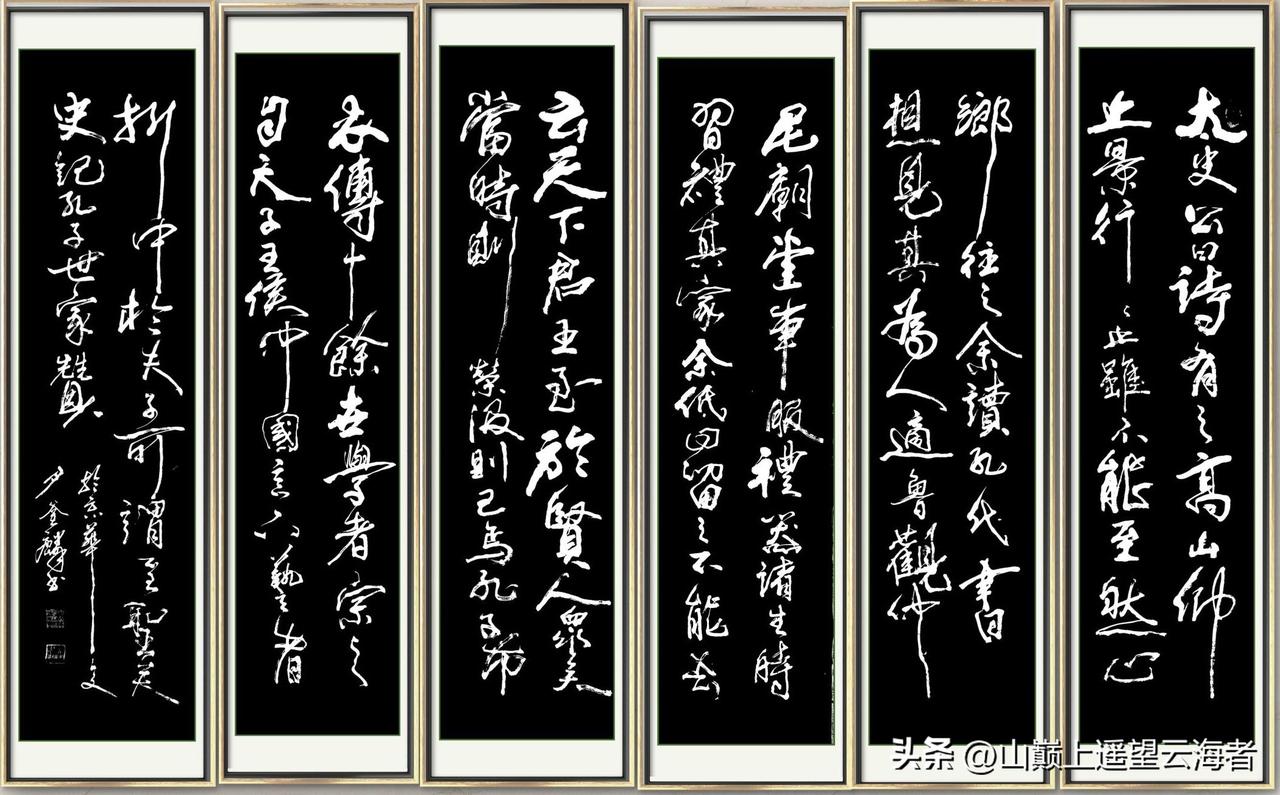 太史公曰詩有之高山仰
止景行〻止雖不能至然心
鄉往之余讀孔氏書
想見其為人適魯觀仲
尼廟堂車服禮器諸生時
習禮其家余低回留之不能去
云天下君王至於賢人眾矣
當時則榮沒則已焉孔子布
衣傳十餘世學者宗之
自天子王侯中國言六藝者
折中於夫子可謂至聖矣
史記孔子世家贊
於京華
頭条 @山巅上遥望云海者